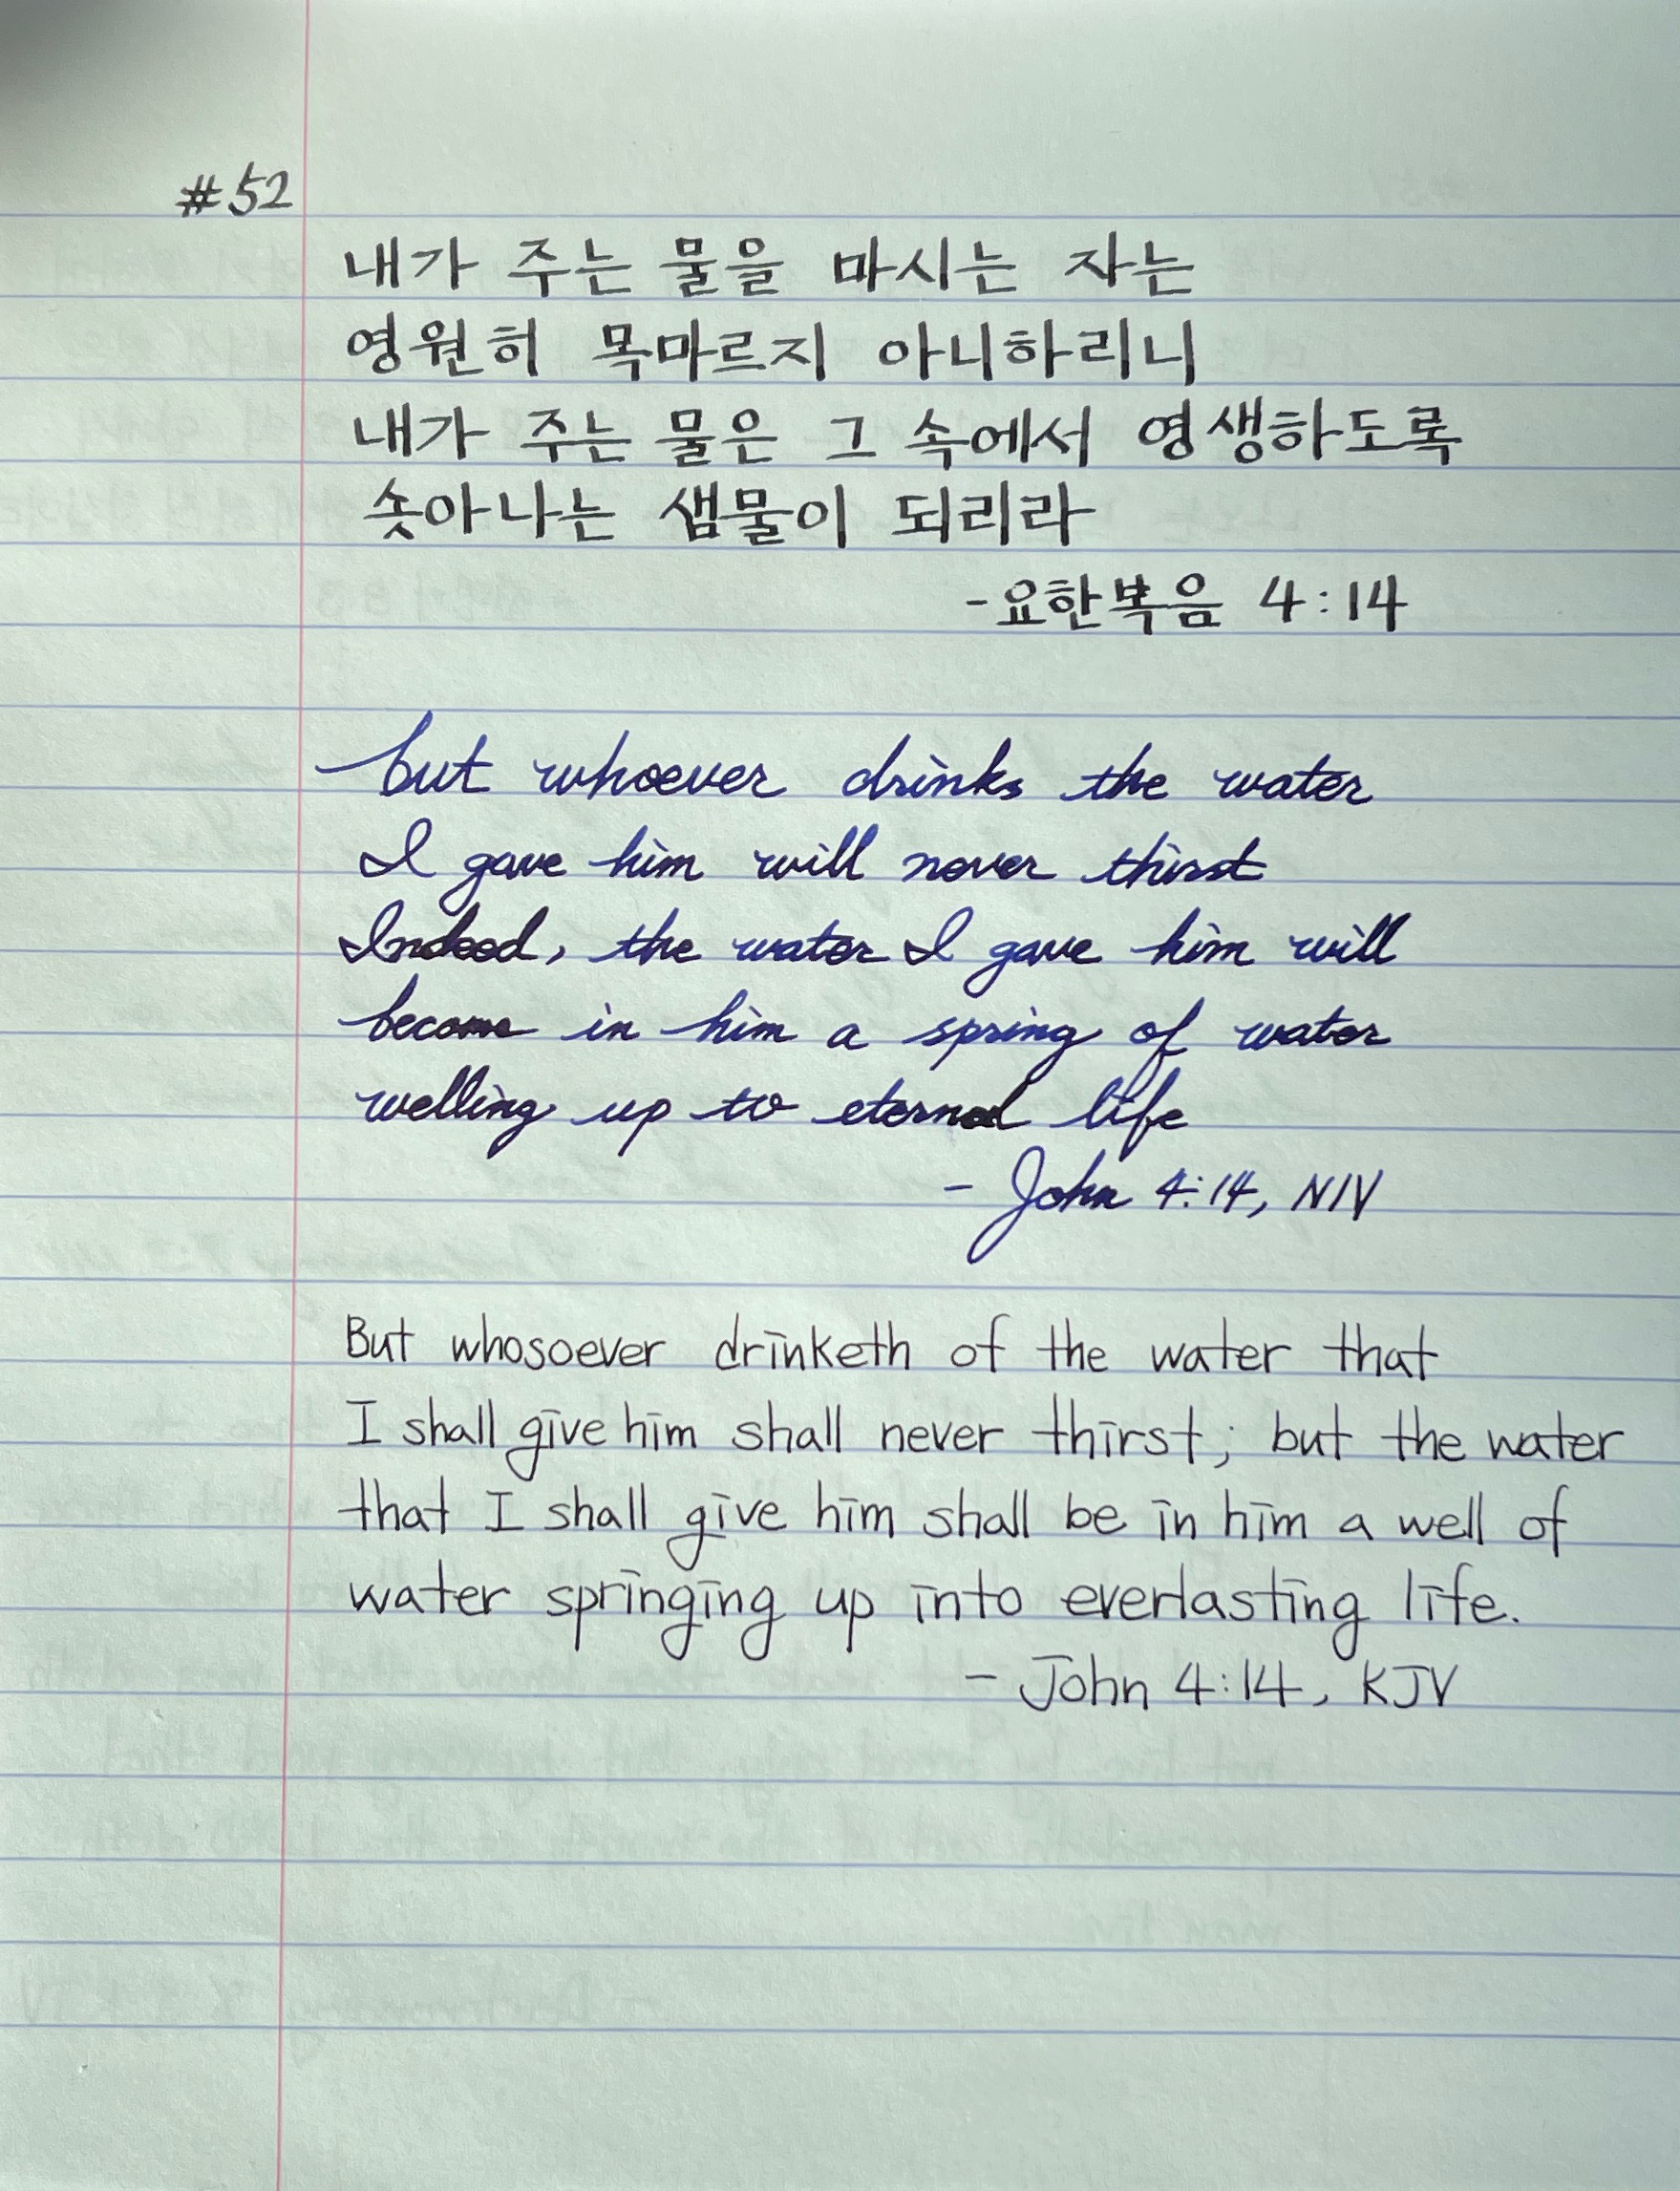 #52
내가 주는 물을 마시는 자는
영원히 목마르지 아니하리니
내가 주는 물은 그 속에서 영생하도록
솟아나는 샘물이 되리라
-요한복음 4:14
but whoever drinks the water
I gave him will never thirst
Indeed, the water I gave him will
become in him a spring of water
welling up to eternal life
- John 4:14, NIV
But whosoever drinketh of the water that
I shall give him shall never thirst; but the water
that I shall give him shall be in him a well of
water springing up into everlasting life.
- John 4:14, KJV